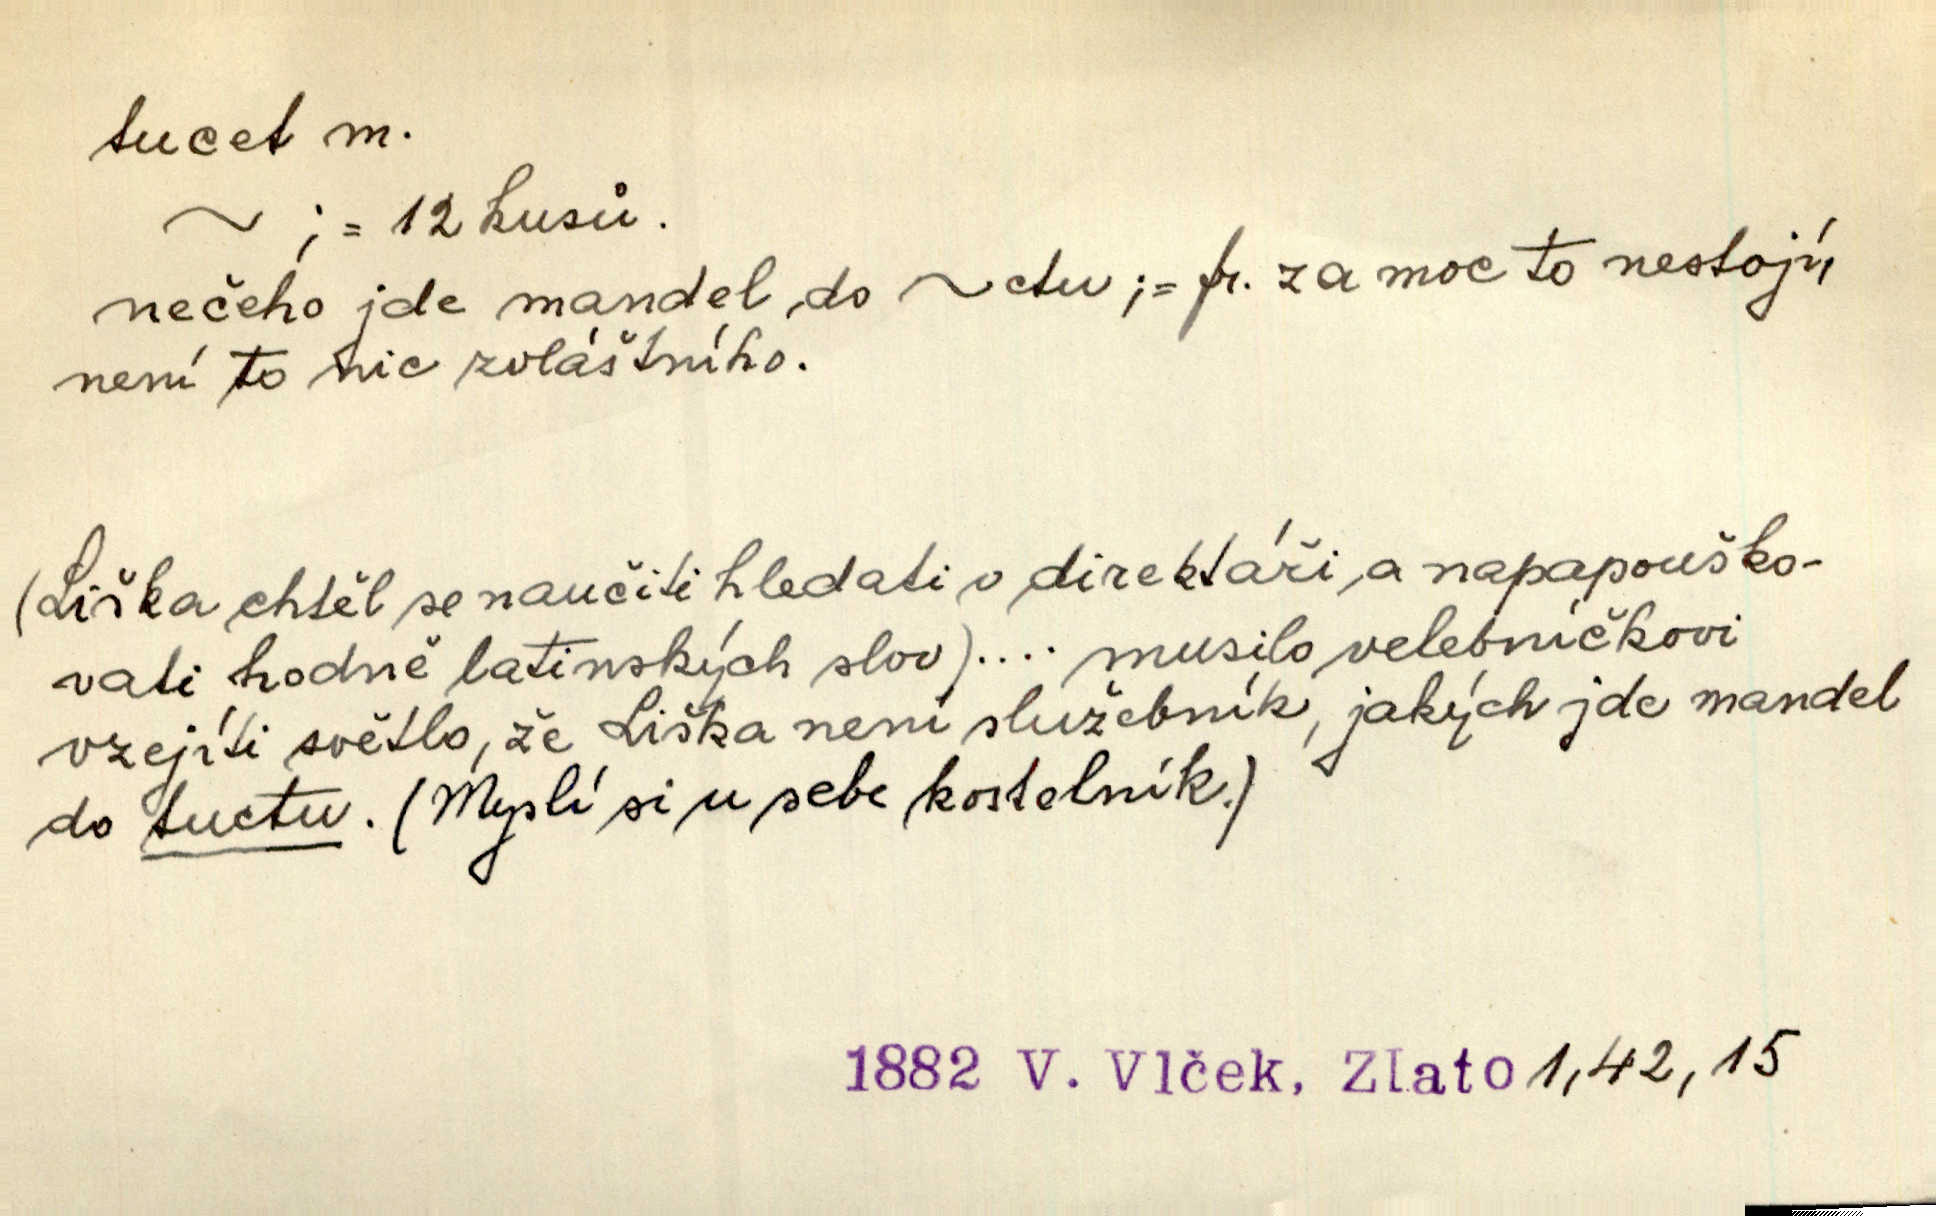 tucet m.
~ ; = 12 kusů.
nečeho jde mandel do ~ctu ; = fr. za moc to nestojí,
není to nic zvláštního.
(Liška chtěl se naučiti hledati v direktáři a napapouško-
vati hodně latinských slov).... musilo velebníčkovi
vzejíti světlo, že Liška není služebník, jakých jde mandel
do tuctu. (Myslí si u sebe kostelník.)
1882 V. Vlček, Zlato 1, 42, 15